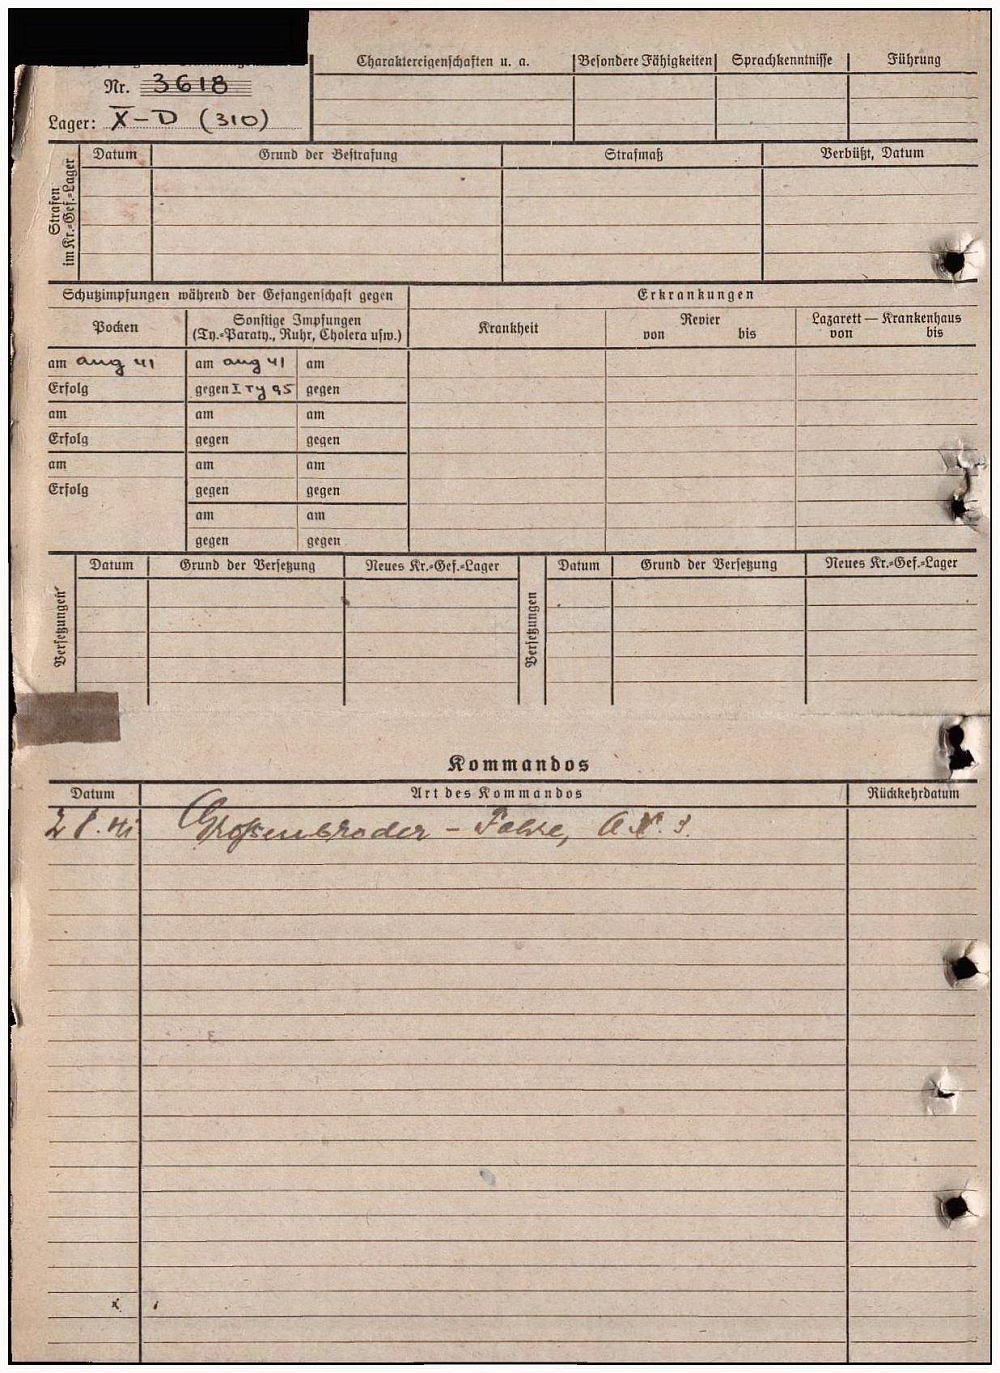 Nr. 3618
Lager: X-D (310)
Charaktereigenschaften u. a. Besondere Fähigkeiten Sprachkenntnisse Führung
Strafen im Kr.=Gef.=Lager
Datum Grund der Bestrafung Strafmaß Verbüßt, Datum
Schutzimpfungen während der Gefangenschaft gegen Erkrankungen
Pocken Sonstige Impfungen (Ty.=Paraty., Ruhr, Cholera usw.) Krankheit Revier von bis Lazarett — Krankenhaus von bis
am aug 41 am aug 41 am
Erfolg gegen I Ty 95 gegen
am am am
Erfolg gegen gegen
am am am
Erfolg gegen gegen
am am
gegen gegen
Versetzungen Datum Grund der Versetzung Neues Kr.=Gef.=Lager Versetzungen Datum Grund der Versetzung Neues Kr.=Gef.=Lager
Kommandos
Datum Art des Kommandos Rückkehrdatum
Großenbroder -